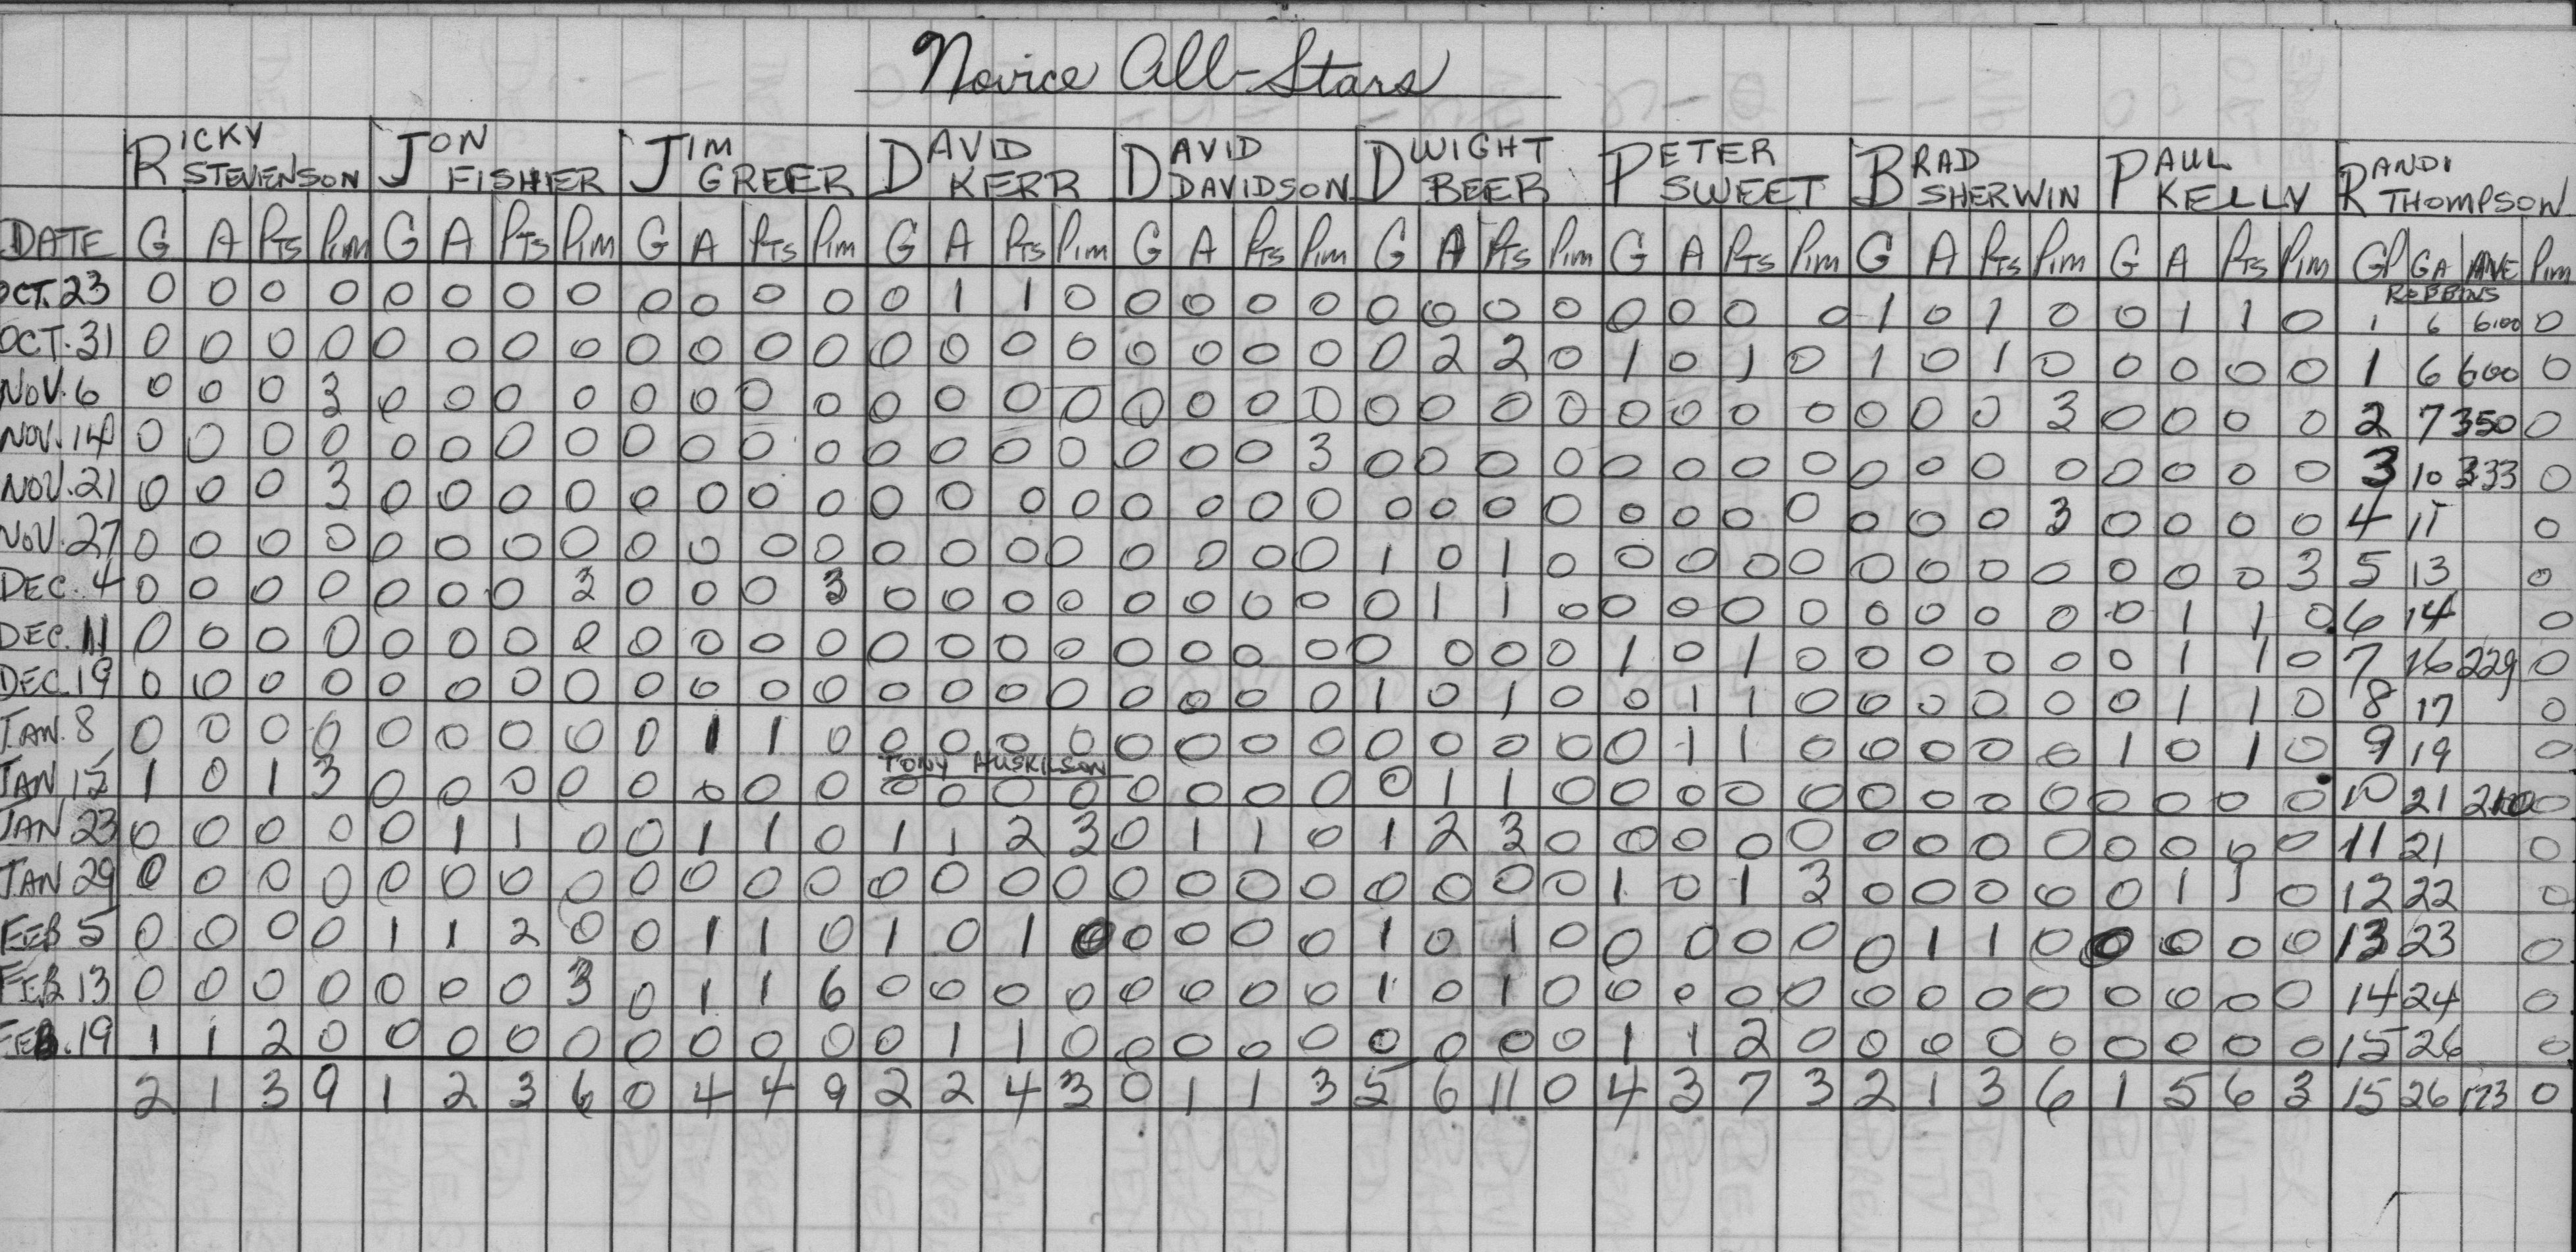 Novice All-Stars
RICKY STEVENSON JON FISHER JIM GREER DAVID KERR DAVID DAVIDSON DWIGHT BEER PETER SWEET BRAD SHERWIN PAUL KELLY RANDI THOMPSON
DATE G A PTS PIM G A PTS PIM G A PTS PIM G A PTS PIM G A PTS PIM G A PTS PIM G A PTS PIM G A PTS PIM G A PTS PIM GP GA AVE PIM
ROBBINS
OCT. 23 0 0 0 0 0 0 0 0 0 0 0 0 0 1 1 0 0 0 0 0 0 0 0 0 0 0 0 0 1 0 1 0 0 1 1 0 1 6 6.00 0
OCT. 31 0 0 0 0 0 0 0 0 0 0 0 0 0 0 0 0 0 0 0 0 0 2 2 0 1 0 1 0 1 0 1 0 0 0 0 0 1 6 600 0
NOV. 6 0 0 0 3 0 0 0 0 0 0 0 0 0 0 0 0 0 0 0 0 0 0 0 0 0 0 0 0 0 0 0 3 0 0 0 0 2 7 350 0
NOV. 14 0 0 0 0 0 0 0 0 0 0 0 0 0 0 0 0 0 0 0 3 0 0 0 0 0 0 0 0 0 0 0 0 0 0 0 0 3 10 333 0
NOV. 21 0 0 0 3 0 0 0 0 0 0 0 0 0 0 0 0 0 0 0 0 0 0 0 0 0 0 0 0 0 0 0 3 0 0 0 0 4 11 0
NOV. 27 0 0 0 0 0 0 0 0 0 0 0 0 0 0 0 0 0 0 0 0 1 0 1 0 0 0 0 0 0 0 0 0 0 0 0 3 5 13 0
DEC. 4 0 0 0 0 0 0 0 3 0 0 0 3 0 0 0 0 0 0 0 0 0 1 1 0 0 0 0 0 0 0 0 0 0 1 1 0 6 14 0
DEC. 11 0 0 0 0 0 0 0 0 0 0 0 0 0 0 0 0 0 0 0 0 0 0 0 0 1 0 1 0 0 0 0 0 0 1 1 0 7 16 229 0
DEC. 19 0 0 0 0 0 0 0 0 0 0 0 0 0 0 0 0 0 0 0 0 1 0 1 0 0 1 1 0 0 0 0 0 0 1 1 0 8 17 0
JAN. 8 0 0 0 0 0 0 0 0 0 1 1 0 0 0 0 0 0 0 0 0 0 0 0 0 0 1 1 0 0 0 0 0 1 0 1 0 9 19 0
TONY HUSKILSON
JAN 15 1 0 1 3 0 0 0 0 0 0 0 0 0 0 0 0 0 0 0 0 0 1 1 0 0 0 0 0 0 0 0 0 0 0 0 0 10 21 210 0
JAN 23 0 0 0 0 0 1 1 0 0 1 1 0 1 1 2 3 0 1 1 0 1 2 3 0 0 0 0 0 0 0 0 0 0 0 0 0 11 21 0
JAN 29 0 0 0 0 0 0 0 0 0 0 0 0 0 0 0 0 0 0 0 0 0 0 0 0 1 0 1 3 0 0 0 0 0 1 1 0 12 22 0
FEB 5 0 0 0 0 1 1 2 0 0 1 1 0 1 0 1 0 0 0 0 0 1 0 1 0 0 0 0 0 0 1 1 0 0 0 0 0 13 23 0
FEB 13 0 0 0 0 0 0 0 3 0 1 1 6 0 0 0 0 0 0 0 0 1 0 1 0 0 0 0 0 0 0 0 0 0 0 0 0 14 24 0
FEB. 19 1 1 2 0 0 0 0 0 0 0 0 0 0 1 1 0 0 0 0 0 0 0 0 0 1 1 2 0 0 0 0 0 0 0 0 0 15 26 0
2 1 3 9 1 2 3 6 0 4 4 9 2 2 4 3 0 1 1 3 5 6 11 0 4 3 7 3 2 1 3 6 1 5 6 3 15 26 173 0